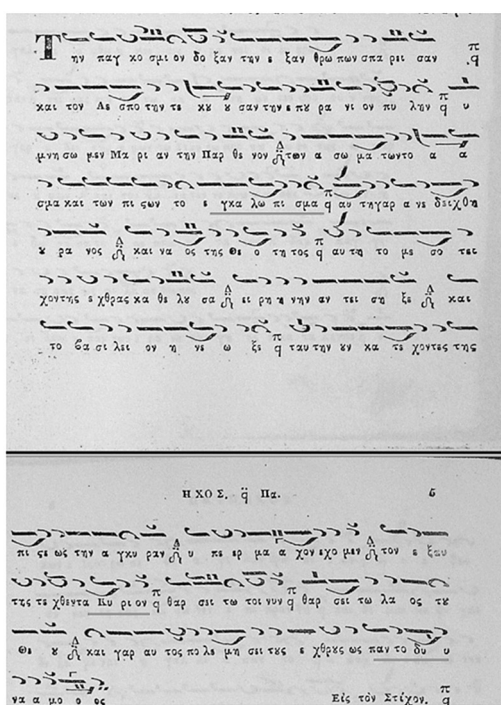 Την παγ κο σμι ον δο ξαν την ε ξαν θρω πων σπα ρει σαν
και τον Δε σπο την τε κυ υ σαν την ε πυ ρα νι ον πυ λην υ
μνη σω μεν Μα ρι αν την Παρ θε νον των α σω μα των το α α
σμα και των πι ςων το ε γκα λω πι σμα αυ τη γαρ α νε δειχθη
υ ρα νος και να ος της Θε ο τη τος αυ τη το με σο τει
χον της ε χθρας κα θε λυ σα ει ρη νην αν τει ση ξε και
το βα σι λει ον η νε ω ξε ταυ την υν κα τε χον τες της
ΗΧΟΣ. Πα. 5
πι ςε ως την α γκυ ραν υ πε ερ μα α χον εχο μεν τον ε ξαυ
της τε χθεντα Κυ ρι ον θαρ σει τω τοι νυν θαρ σει τω λα ος τυ
Θε υ και γαρ αυ τος πο λε μη σει τυς ε χθρυς ως παν το δυ υ
να α μο ο ος Εις τὸν Στίχον.